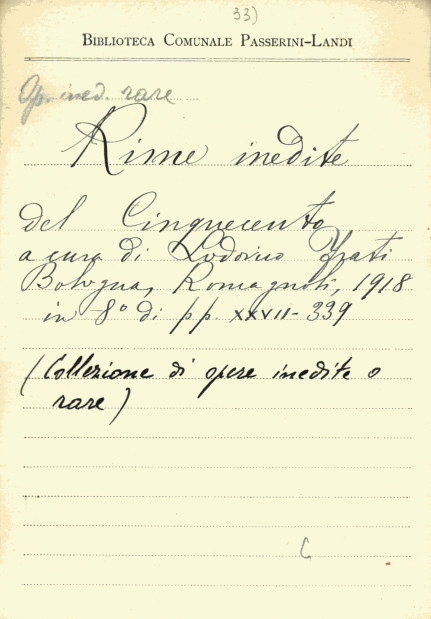 33)
BIBLIOTECA COMUNALE PASSERINI-LANDI
Op. ined. rare
Rime inedite
del Cinquecento
a cura di Lodovico Frati
Bologna, Romagnoli, 1918
in 8° di pp. XXVII-339
(Collezione di opere inedite o
rare)
C